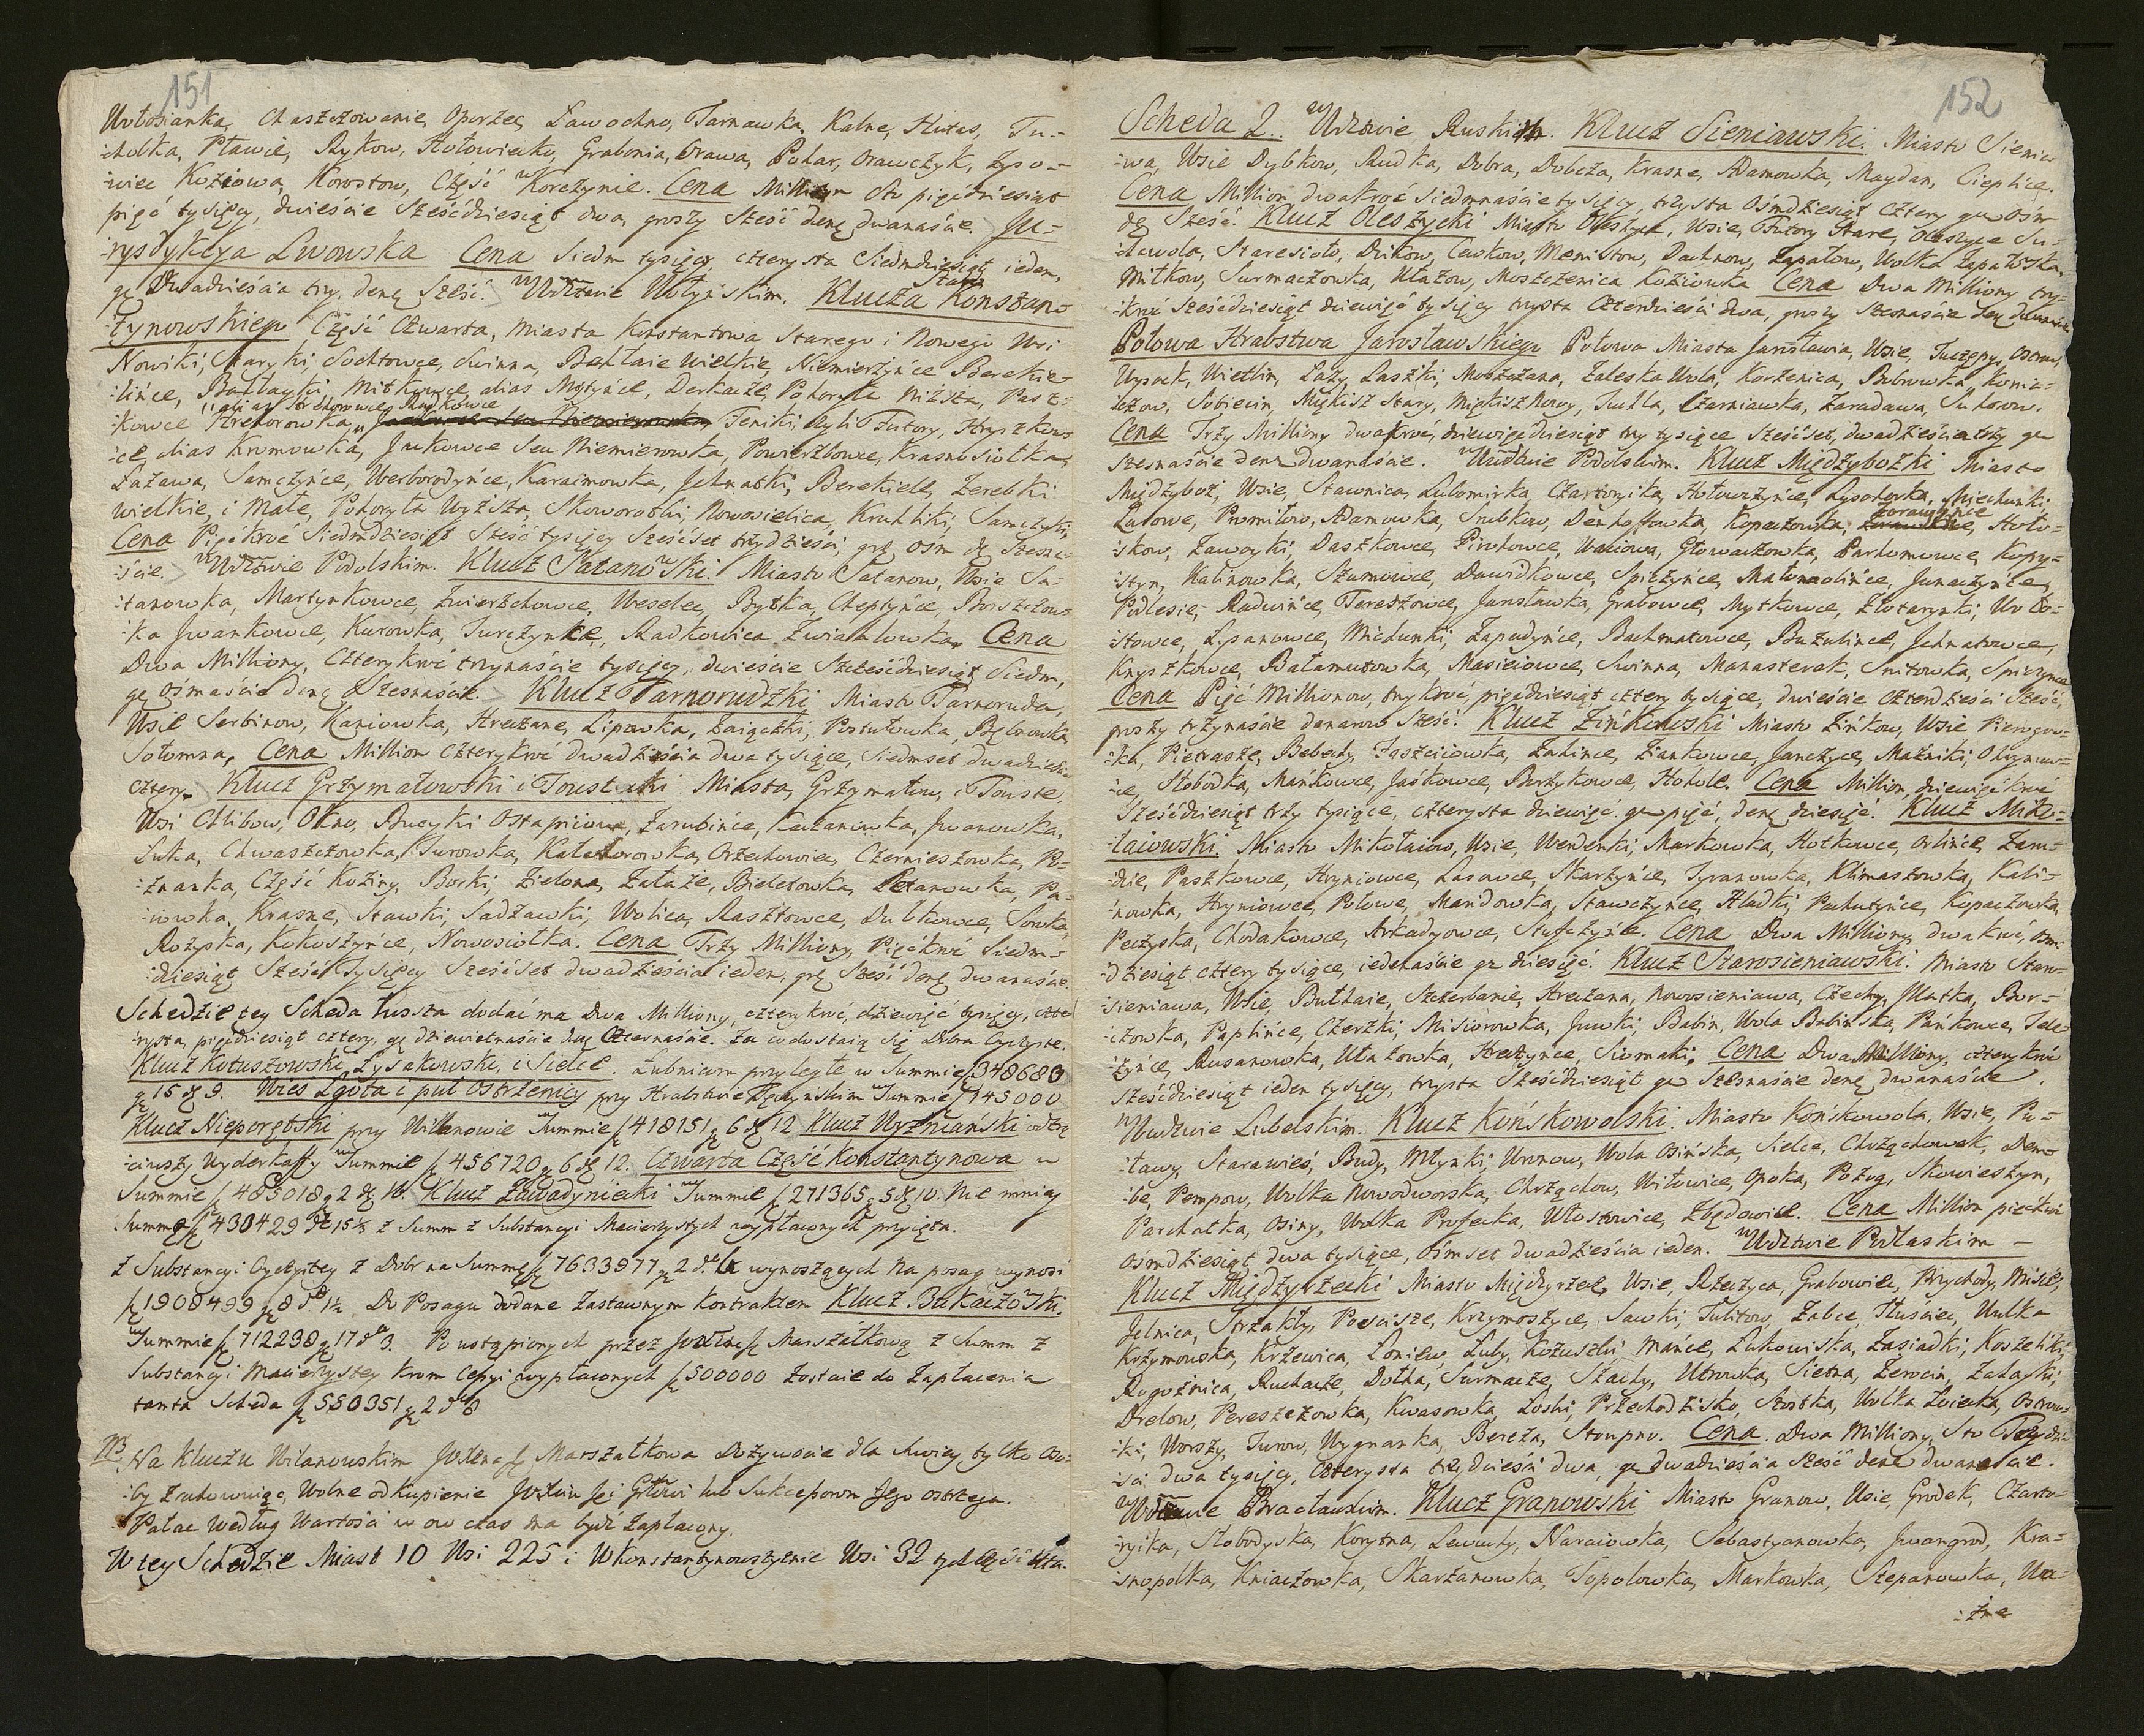 151
Wołosianka, Chaszczowanie, Oporzec, Ławochno, Tarnawka, Kalne, Hutas, Tu-
:cholka, Pławie, Rykow, Hołowiecko, Grabonia, Orawa, Pohar, Orawczyk, Łyso-
:wiec Koziowa, Korostow, Część w Korczynie. Cena Million Sto pięćdziesiąt
pięć tysięcy, dwieście sześćdziesiąt dwa, groszy sześć denę dwanaście. Ju-
:rysdykcya Lwowska Cena Siedm tysięcy czterysta Siedmdziesiąt ieden,
gę Dwadzieścia trzy, denę sześć. w Wdztwie Wołyńskim. Klucza Staro Konstan-
:tynowskiego Część Czwarta, Miasta Konstantowa Starego i Nowego Wsi
Nowiki, Staryki, Sochtowce, Swinna, Behłaie Wielkie, Niemierzyńce Berekie-
:lińce, Bahłayki, Mitkowce alias Mytyńce, Derkacze, Pohoryła Niższa, Pasz-
alias Hrehorowce, Rudkowce
:kowce Hrehorowka, Teniki, Kyli Futory, Hryszkow-
:ce, alias Kromowka, Jackowce seu Niemierowka, Powierzbowce, Krasnosiołka,
Łazawa, Samczyńce, Werborodyńce, Karaimowka, Jehnatki, Berekiele, Zerebki
wielkie, i Małe, Pohoryła Wyższa, Skoworodki, Nowosielica, Kruhliki, Samczyki,
Cena Pięćkroć Siedmdziesiąt Sześć tysięcy Sześćset trzydzieści, grę ośm dę Szesna-
:ście. w Wdztwie Podolskim. Klucz Satanowski. Miasto Satanow, Wsie Sa-
:tanowka, Martynkowce, Zwierzchowce, Weselec, Bytka, Cheptyńce, Borszczow-
:ka Jwankowce, Kurowka, Jurczynke, Radkowica, Zwiahlowka. Cena
Dwa Milliony, Czterykroć trzynaście tysięcy, dwieście Sześćdziesiąt Siedm,
gę Ośmaście denę Szesnaście. Klucz Tarnorudzki Miasto Tarnoruda,
Wsie Serbinow, Kaniowka, Hreczane, Lipowka, Zaiączki, Postułowka, Bębnowka
Sołomna, Cena Million Czterykroć dwadzieścia dwa tysiące, Siedmset dwadzieścia
cztery. Klucz Grzymałowski i Toustecki Miasta, Grzymałow, i Touste,
Wsi Chlibow, Okno, Bucyki Ostapiiowa, Zarubińce, Kaczanowka, Jwanowka,
Łuka, Chwaszczowka, Turowka, Kałaharowka, Orzechowiec, Czernieszowka, Po-
:znanka, Część Koziny, Borki, Zielona, Załuże, Bielelowka, Leżanowka, Pa-
:iowka, Krasne, Stawki, Sadzawki, Wolica, Rasztowce, Dubkowce, Sorocka,
Rożyska, Kokoszyńce, Nowosiołka. Cena Trzy Milliony, Pięćkroć Siedm-
:dziesiąt Sześć Tysięcy Sześćset dwadzieścia ieden, grę Sześć denę dwanaście.
Schedzie tey Scheda tuszta dodać ma Dwa Milliony, czterykroć, dziewięć tysięcy, czte-
:rysta, pięćdziesiąt cztery, gę dziewiętnaście denę Czternaście. Za co dostaią się Dobra Oyczyste.
Klucz Kotuszowski, Łysakowski, i Sielec. Łubnicom przyległe w Summie f 348680
g 15 d 9. Wieś Lgota i puł Ostrzenicy przy Hrabstwie Tęczyńskim w Summie f 145000
Klucz Nieporętski przy Wilanowie w Summie f 418151 g 6 d 12 Klucz Wyzniański
w Summie f 456720 g 6 d 12. Czwarta Część Konstantynowa w
Summie f 485018 g 2 d 16. Klucz Zawadyniecki w Summie f 271365 g 5 d 10. Nie mniey
Summa f 430429 d 15½ z Summ z Substancyi Macierzystych wypłaconych przyięta.
z Substancyi Oyczystey z Dobr na Summę f 7633977 g 2 wynoszących Na posag wynosi
f 1908499 g 8 d 1½ Do Posagu dodane Zastawnym Kontraktem Klucz Bukaczowski.
w Summie f 712238 g 17 d 3. Po ustąpionych przez Marszałkową z Summ z
Substancyi Macierzystey krom Cessyi wypłaconych f 500000 zostaie do Zapłacenia
tamta Scheda f 550351 g 2 d 8
NB. Na Kluczu Wilanowskim Marszałkowa Dożywocie dla swoiey tylko Oso-
:by zachowuiąc, Wolne odkupienie lub Sukcessorom Jego ostrzega.
Pałac według Wartości w ow czas ma być zapłacony.
W tey Schedzie Miast 10 Wsi 225 i w Konstantynowszyznie Wsi 32
152
Scheda 2. w Wdztwie Ruskim. Klucz Sieniawski. Miasto Sienia-
:wa, Wsie Dybkow, Rudka, Dobra, Dobcza, Krasne, Adamowka, Maydan, Cieplice.
Cena Million dwakroć siedmnaście tysięcy, trzysta Ośmdziesiąt Cztery gę ośm
dę Sześć. Klucz Oleszycki Miasto Oleszyce, Wsie, Futory Stare, Oleszyce Su-
:chawola, Staresioło, Dzikow, Cewkow, Moniston, Dachnow, Zapałow, Wolka Zapałowska,
Miłkow, Surmaczowka, Ułazow, Moszczenica Koziowka Cena Dwa Milliony trzy-
:kroć Sześćdziesiąt dziewięć tysięcy trzysta Czterdzieści dwa, groszy szesnaście denę dwanaście.
Połowa Hrabstwa Jarosławskiego Połowa Miasta Jarosławia, Wsie, Tuczępy, Ostrow,
Wysock, Wietlin, Łazy, Laszki, Moszczana, Zaleska Wola, Korzenica, Bobrowka, Konia-
:czow, Sobiecin, Miękisz Stary, Miękisz Nowy, Tuchla, Czarniawka, Zaradawa, Suchorow.
Cena Trzy Milliony dwakroć, dziewięćdziesiąt trzy tysiące Sześćset, dwadzieścia trzy gę
szesnaście denę dwanaście. w Wdztwie Podolskim. Klucz Międzybozki Miasto
Międzyboż, Wsie, Stawnica, Lubomirka, Czartoryika, Hołowczyńce, Lysohorka, Miechunki,
Latowe, Promiłow, Adamowka, Srubkow, Denhoffowka, Kopaczowka, Zorawlińce, Hoło-
:skow, Zawoyki, Daszkowce, Pirohowce, Waniowa, Głowaczowka, Parhomowce, Kopy-
:styn, Kalinowka, Szumowce, Dawidkowce, Spiczyńce, Małomolińce, Junaczyńce,
Podlesie, Radwińce, Tereszowce, Jarosławka, Grabowce, Mytkowce, Złotarynki, Woło-
:stowce, Łysanowce, Michunki, Zapadyńce, Bachmatowce, Buzulince, Jehnatowce,
Knyszkowce, Bałamutowka, Masieiowce, Swinna, Manasterek, Snitowka, Spiczynce
Cena Pięć Millionow, trzykroć, pięćdziesiąt cztery tysiące, dwieście czterdzieści Sześć,
groszy trzynaście denarow sześć. Klucz Zinkowski Miasto Zińkow, Wsie Pierogow-
:ka, Pietrasze, Bebechy, Jaszcziiowka, Zahince, Ziankowce, Janczyce, Mazniki, Ohrynow-
:ce, Słobodka, Mańkowce, Jaśkowce, Burzykowce, Hohole. Cena Million, dziewięćkroć
Sześćdziesiąt trzy tysiące, czterysta dziewięć gę pięć, denę dziesięć. Klucz Miko-
:łaiowski. Miasto Mikołaiow, Wsie, Werwenki, Markowka, Hotkowce, Orlińce, Zam-
:die, Paszkowce, Hryniowce, Lasowce, Skarżyńce, Tyranowka, Klimaszowka, Kali-
:nowka, Hryniowce, Polowe, Maridowka, Stawczyńce, Hładki, Pachutyńce, Kopaczowka,
Peczyska, Chodakowce, Arkadyowce, Stufczyńce. Cena Dwa Milliony, dwakroć, Ośm-
:dziesiąt cztery tysiące, iedenaście gę dziesięć. Klucz Starosieniawski. Miasto Staro-
:sieniawa, Wsie, Buthaie, Szczerbanie, Hreczana, Nowosieniawa, Czechy, Ilatka, Bor-
:czowka, Paplińce, Czerzki, Misiorowka, Juwki, Babin, Wola Babińska, Pańkowce, Tele-
:żyńce, Rusanowka, Ułazowka, Hreczyńce, Siomaki, Cena Dwa Milliony, czterykroć
Sześćdziesiąt ieden tysięcy, trzysta Sześćdziesiąt gę Szesnaście denę dwanaście.
w Wdztwie Lubelskim. Klucz Końskowolski. Miasto Końskowola, Wsie, Pu-
:ławy, Starawieś, Budy, Młynki, Wronow, Wola Osińska, Sielce, Chrząchowek, Dem-
:be, Pompow, Wolka Nowodworska, Chrząchow, Witowice, Opoka, Pożog, Skowieszyn,
Parchatka, Osiny, Wolka Profecka, Włostowice, Zbędowice. Cena Million pięćkroć
Ośmdziesiąt dwa tysiące, Ośmset dwadzieścia ieden. w Wdztwie Podlaskim –
Klucz Międzyrzecki Miasto Międzyrzec, Wsie, Rzeczyca, Grabowiec, Przychody, Misie,
Jelnica, Strzakły, Pościsze, Krzymoszyce, Sawki, Tulitow, Zabce, Tłuściec, Wulka
Krzymowska, Krzewica, Łoniew, Łuby, Kożuszki, Mańce, Łukowiska, Zasiadki, Koszeliki,
Rogoźnica, Ruchacze, Dołha, Surmacze, Stachy, Utrowka, Sietna, Zerocin, Zahayki,
Drelow, Pereszczowka, Kwasowka, Łoski, Przechodzisko, Stostka, Wolka Łoiecka, Ostrow-
:ki, Worszy, Turow, Wygnanka, Bereza, Stoupno. Cena. Dwa Milliony, Sto Trzydzie-
:ści dwa tysięcy, czterysta trzydzieści dwa, gę dwadzieścia sześć denę dwanaście.
w Wdztwie Bracławskim. Klucz Granowski Miasto Granow, Wsie, Grodek, Czarto-
:ryika, Słobodyska, Korytna, Lewuchy, Naraiowka, Sebastyanowka, Jwangrod, Kra-
:snopolka, Kniaczowka, Skarzanowka, Topolowka, Markowka, Stepanowka, Wa-
:źne